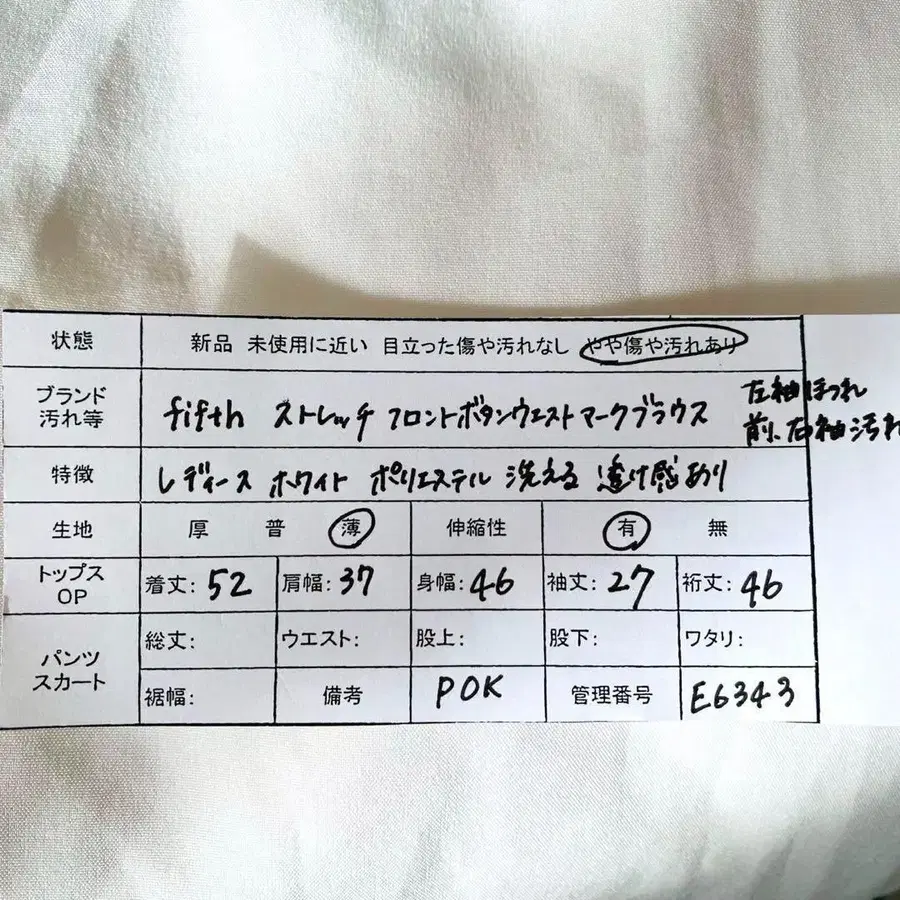 状態 新品 未使用に近い 目立った傷や汚れなし やや傷や汚れあり
ブランド 汚れ等 fifth ストレッチ フロントボタンウエストマークブラウス 左袖ほつれ
前、右袖汚れ
特徴 レディース ホワイト ポリエステル 洗える 透け感あり
生地 厚 普 薄 伸縮性 有 無
トップス OP 着丈: 52 肩幅: 37 身幅: 46 袖丈: 27 裄丈: 46
パンツ スカート 総丈: ウエスト: 股上: 股下: ワタリ:
裾幅: 備考 POK 管理番号 E6343